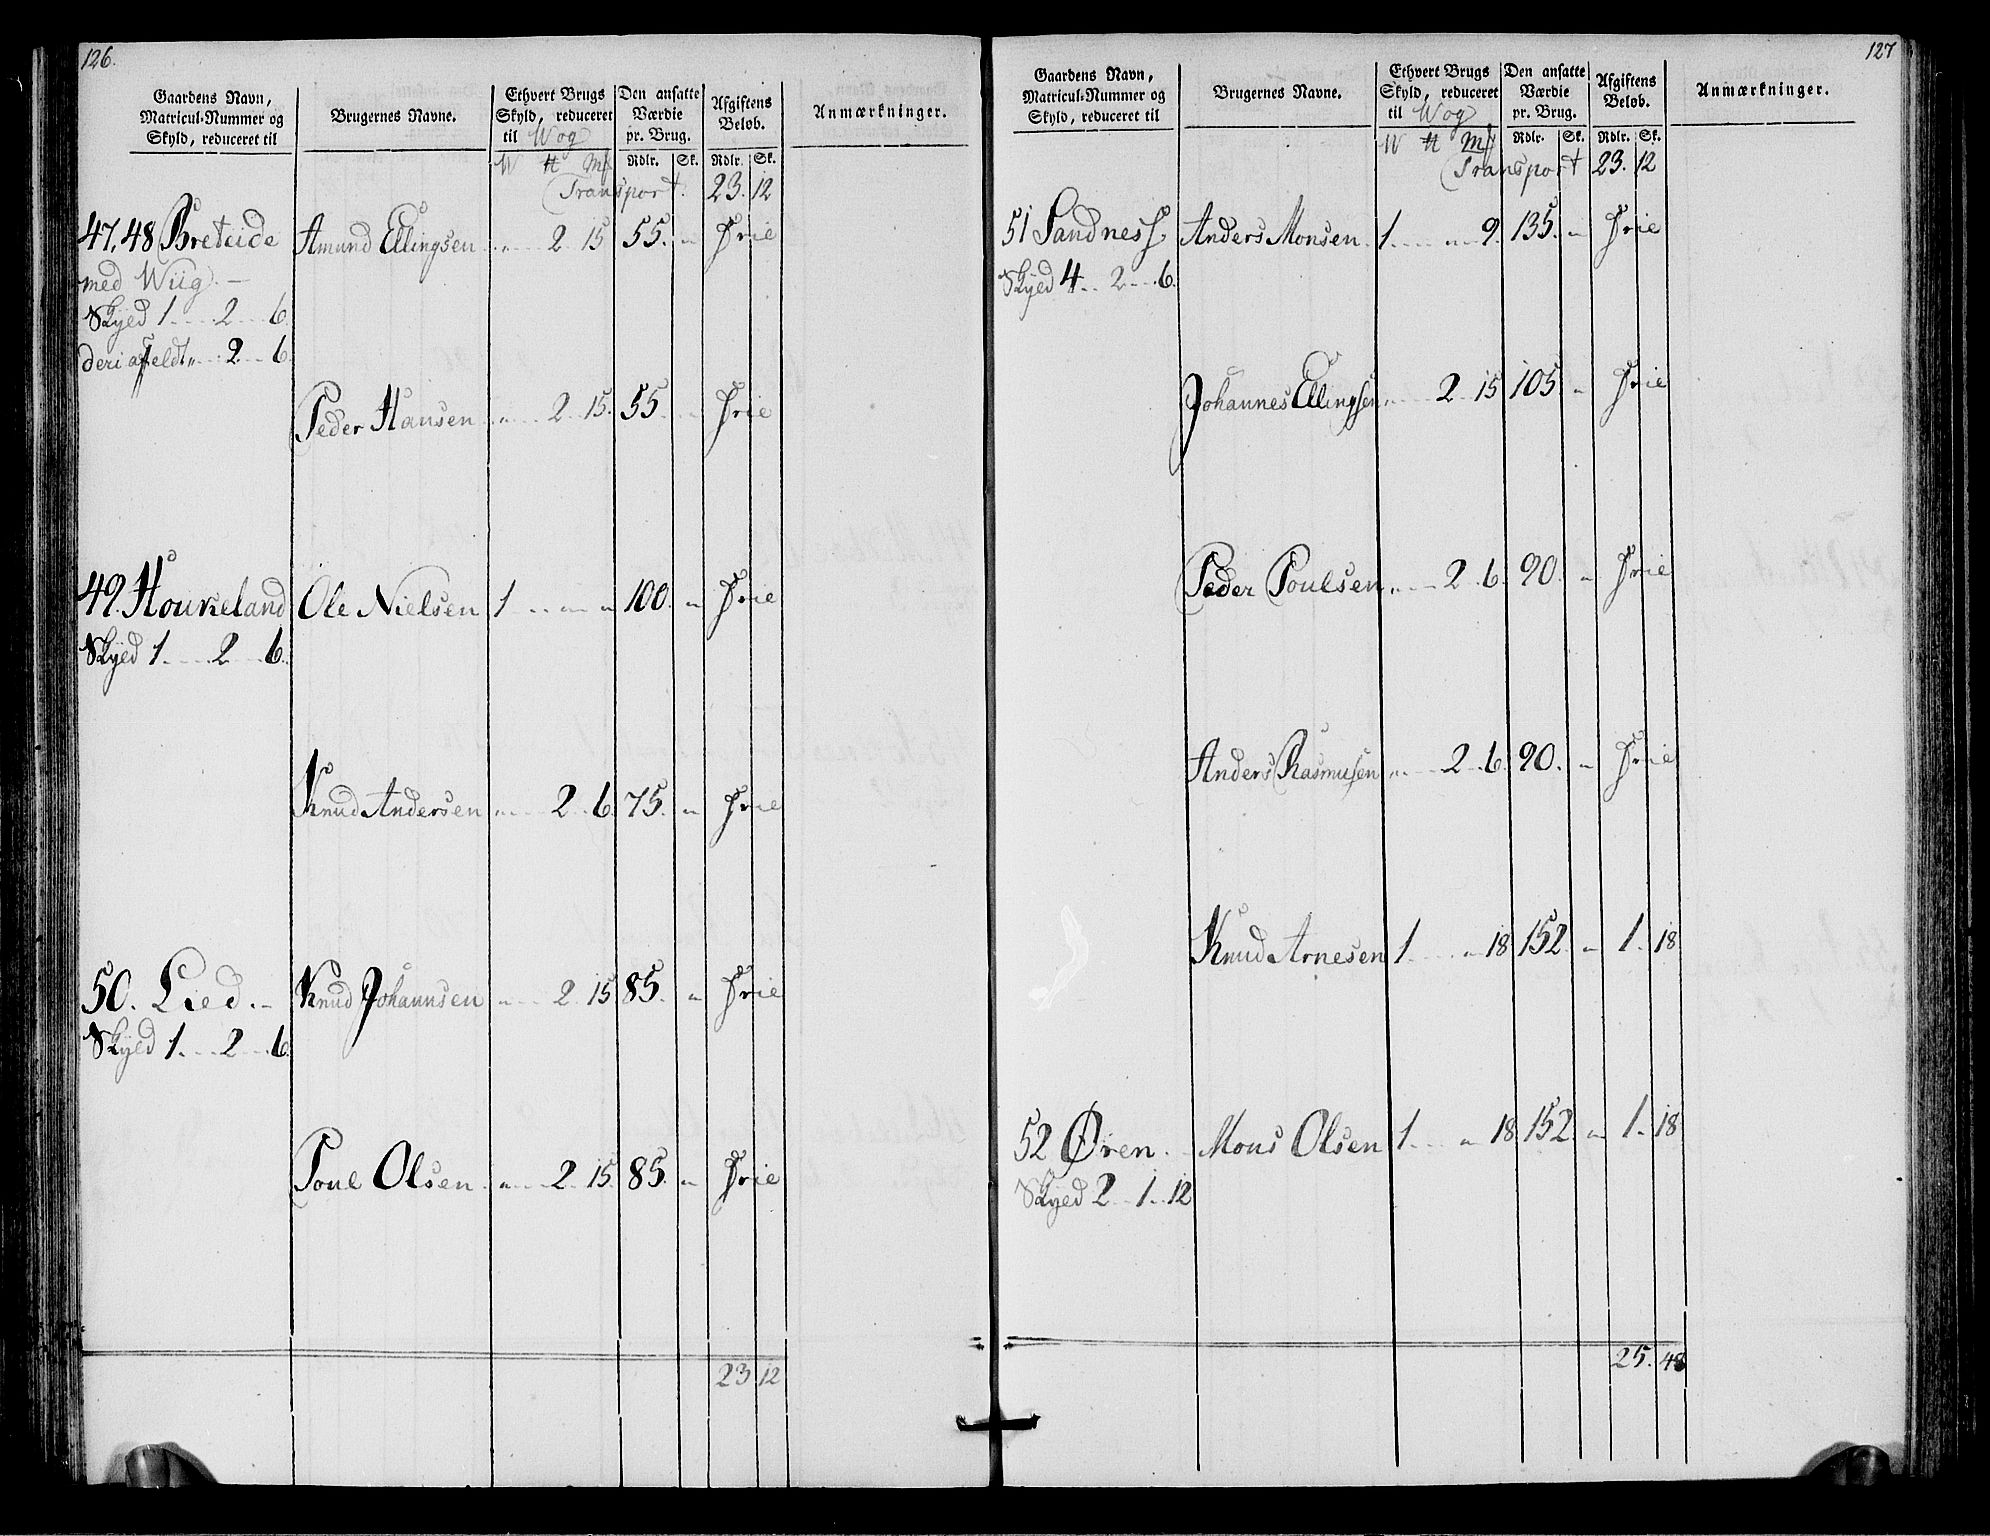 126.
Gaardens Navn,
Matricul-Nummer og
Skyld, reduceret til
Brugernes Navne.
Ethvert Brugs
Skyld, reduceret
til Wog
W ℔ Mk
Den ansatte
Værdie
pr. Brug.
Rdlr. Sk.
Afgiftens
Beløb.
Rdlr. Sk.
Anmærkninger.
Transport. 23. 12
47,48 Breteide Amund Ellingsen „ 2 15 55. „ Frie
med Wiig. —
Skyld 1 2 6
deri affeldt „ 2 6
Peder Hansen „ 2 15. 55 „ Frie
49. Houkeland Ole Nielsen 1 „ „ 100. „ Frie
Skyld 1 2 6.
Knud Andersen „ 2 6. 75. „ Frie
50. Lied. — Knud Johannsen „ 2 15 85. „ Frie
Skyld 1 2 6
Poul Olsen „ 2 15. 85. „ Frie
23 12
127
Gaardens Navn,
Matricul-Nummer og
Skyld, reduceret til
Brugernes Navne.
Ethvert Brugs
Skyld, reduceret
til Wog
W ℔ Mk
Den ansatte
Værdie
pr. Brug.
Rdlr. Sk.
Afgiftens
Beløb.
Rdlr. Sk.
Anmærkninger.
Transport 23. 12
51 Sandness Anders Monsen 1 „ 9. 135. „ Frie
Skyld 4 2 6.
Johannes Ellingsen „ 2 15 105 „ Frie
Peder Poulsen „ 2 6. 90. „ Frie
Anders Rasmusen „ 2 6. 90. „ Frie
Knud Arnesen 1 „ 18 152 „ 1. 18
52 Øren. Mons Olsen 1 „ 18 152 „ 1. 18
Skyld 2 1 12
25. 48